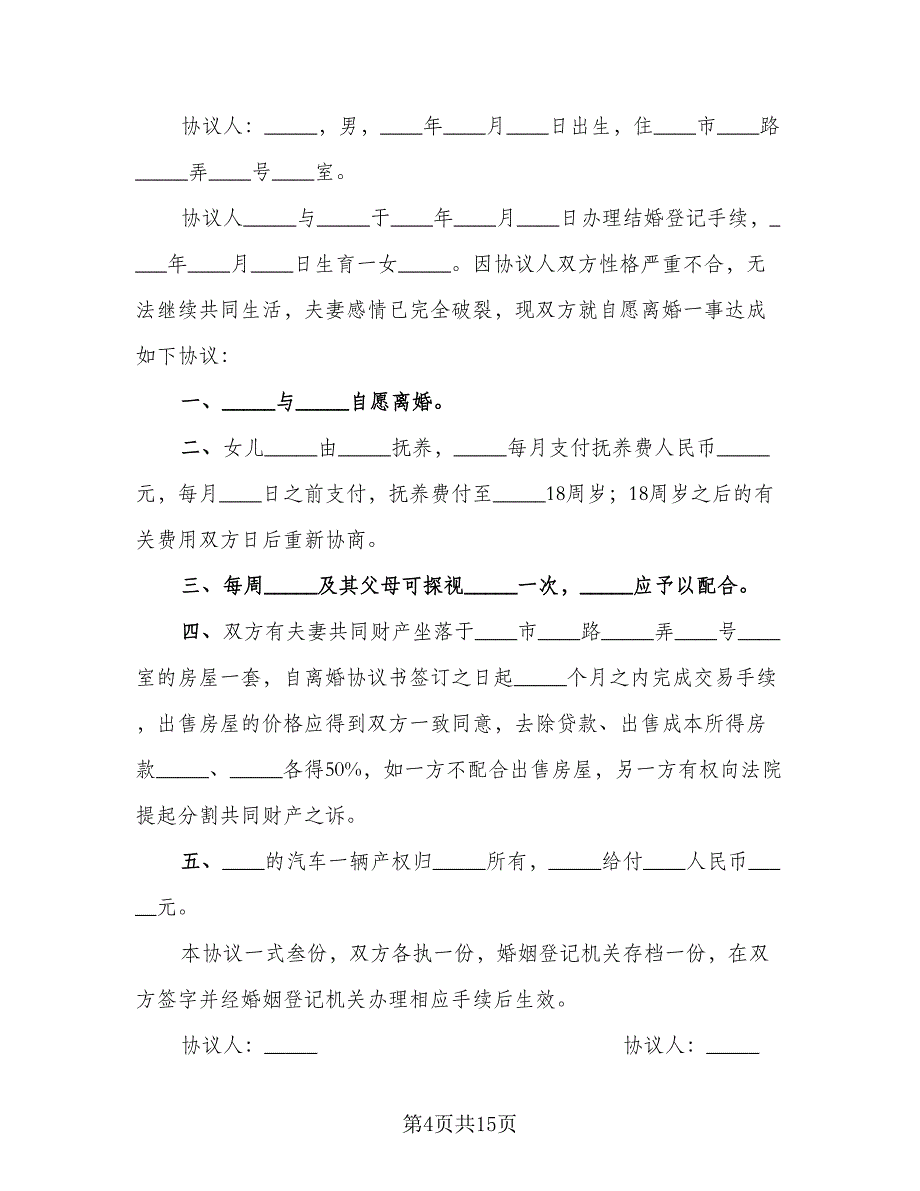 协议人：_____，男，____年____月____日出生，住____市____路
_____弄____号____室。
协议人_____与_____于____年____月____日办理结婚登记手续，_
___年____月____日生育一女_____。因协议人双方性格严重不合，无
法继续共同生活，夫妻感情已完全破裂，现双方就自愿离婚一事达成
如下协议：
一、_____与_____自愿离婚。
二、女儿_____由_____抚养，_____每月支付抚养费人民币_____
元，每月____日之前支付，抚养费付至_____18周岁；18周岁之后的有
关费用双方日后重新协商。
三、每周_____及其父母可探视_____一次，_____应予以配合。
四、双方有夫妻共同财产坐落于____市____路_____弄____号____
室的房屋一套，自离婚协议书签订之日起_____个月之内完成交易手续
，出售房屋的价格应得到双方一致同意，去除贷款、出售成本所得房
款_____、_____各得50%，如一方不配合出售房屋，另一方有权向法院
提起分割共同财产之诉。
五、____的汽车一辆产权归_____所有，_____给付____人民币___
__元。
本协议一式叁份，双方各执一份，婚姻登记机关存档一份，在双
方签字并经婚姻登记机关办理相应手续后生效。
协议人：_____ 协议人：_____
第4页共15页